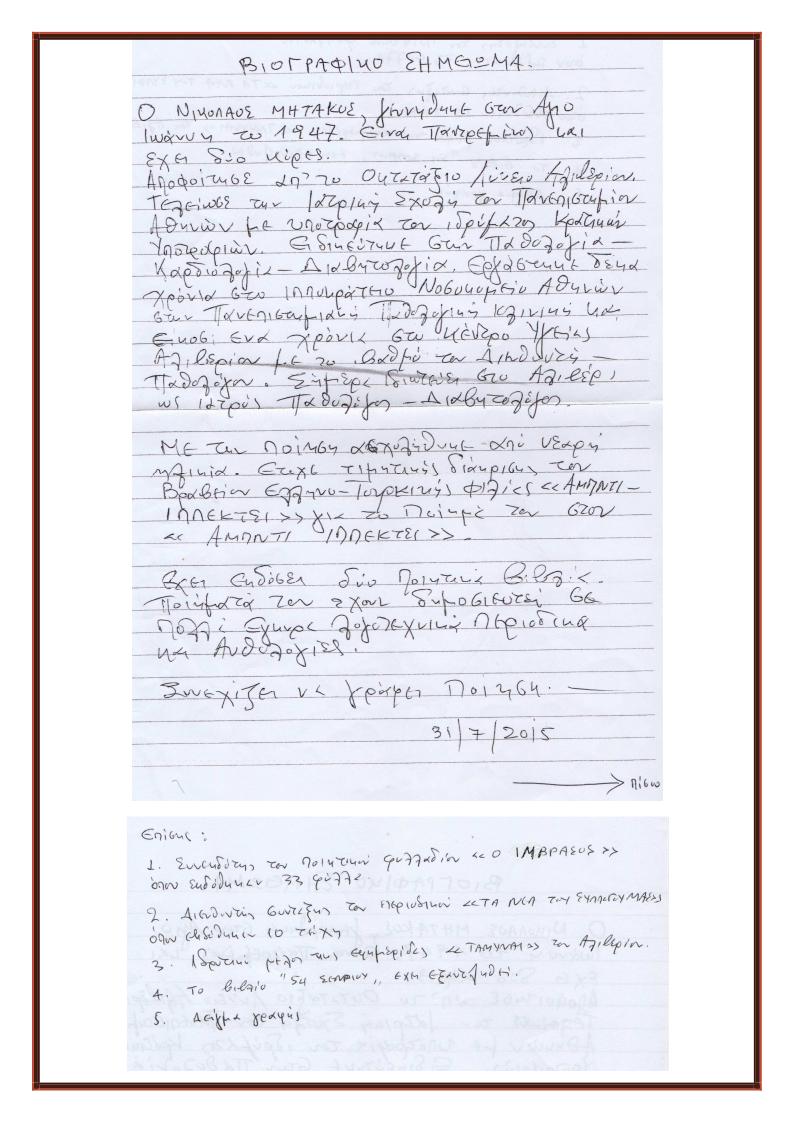 ΒΙΟΓΡΑΦΙΚΟ ΣΗΜΕΙΩΜΑ.
Ο ΝΙΚΟΛΑΟΣ ΜΗΤΑΚΟΣ, γεννήθηκε στον Αγιο
Ιωάννη το 1947. Είναι Παντρεμένος και
έχει δύο κόρες.
Αποφοίτησε απ' το Οκτατάξιο Λύκειο Αλιβερίου.
Τελείωσε την Ιατρική Σχολή του Πανεπιστημίου
Αθηνών με υποτροφία του ιδρύματος Κρατικών
Υποτροφιών. Ειδικεύτηκε στην Παθολογία –
Καρδιολογία – Διαβητολογία. Εργάστηκε δέκα
χρόνια στο Ιπποκράτειο Νοσοκομείο Αθηνών
στην Πανεπιστημιακή Παθολογική Κλινική και
είκοσι ένα χρόνια στο Κέντρο Υγείας
Αλιβερίου με το βαθμό του Διευθυντή –
Παθολόγου. Σήμερα ιδιωτεύει στο Αλιβέρι
ως ιατρός Παθολόγος – Διαβητολόγος.
Με την Ποίηση ασχολήθηκε από νεαρή
ηλικία. Ετυχε τιμητικής διάκρισης του
Βραβείου Ελληνο-Τουρκικής Φιλίας «ΑΜΠΝΤΙ –
ΙΠΠΕΚΤΣΙ» για το Ποίημά του στον
« ΑΜΠΝΤΙ ΙΠΠΕΚΤΣΙ».
Εχει εκδόσει δύο Ποιητικά Βιβλία.
Ποιήματά του έχουν δημοσιευτεί σε
Πολλά έγκυρα λογοτεχνικά Περιοδικά
και Ανθολογίες.
Συνεχίζει να γράφει Ποίηση. —
31/7/2015
→ πίσω
Επίσης :
1. Συνεκδότης του Ποιητικού φυλλαδίου «Ο ΙΜΒΡΑΣΟΣ»
όπου εκδόθηκαν 33 φύλλα
2. Διευθυντής Σύνταξης του περιοδικού «ΤΑ ΝΕΑ του
όπου εκδόθηκαν 10 τεύχη
3. Ιδρυτικό μέλος της εφημερίδας «ΤΑΜΥΝΑΙ» του Αλιβερίου.
4. Το βιβλίο "54 έχει εξαντληθεί.
5. Δείγμα γραφής